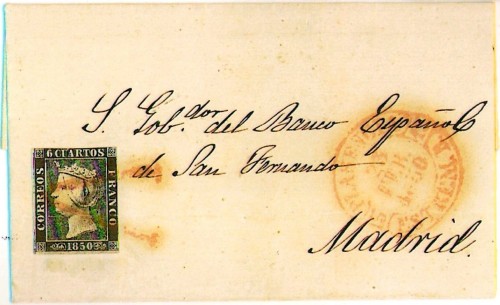 S. Gob.dor del Banco Español
de San Fernando
Madrid.
6 CUARTOS
CORREOS
FRANCO
1850